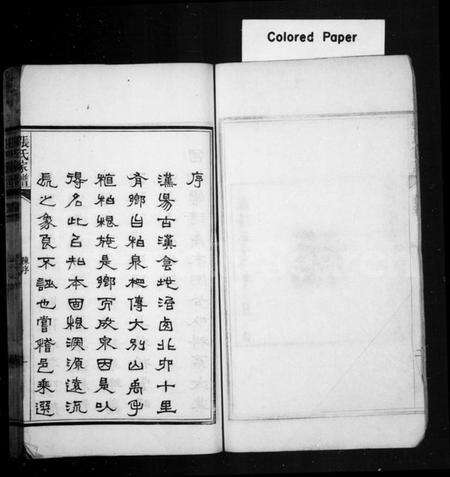 Colored Paper
序
漢陽古漢陰地治西北十里
有鄉曰柏泉相傳大別山禹手
植柏根旋是鄉而成泉因是以
得名此名知本固根深源遠流
長之象良不誣也嘗稽邑乘選
張氏宗譜
序